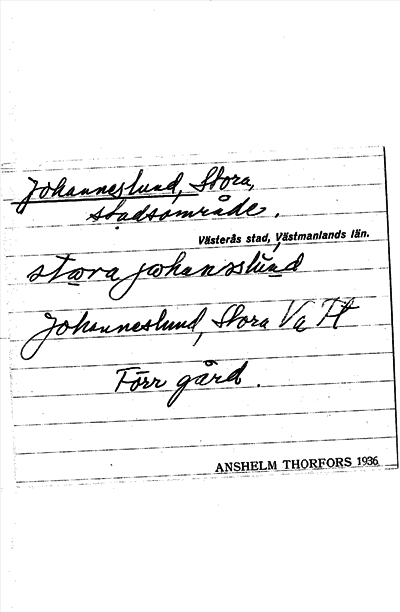 Johanneslund, Stora,
stadsområde.
Västerås stad, Västmanlands län.
stɷra jɷhanslund
Johanneslund, Stora Va Ht
Förr gård.
ANSHELM THORFORS 1936